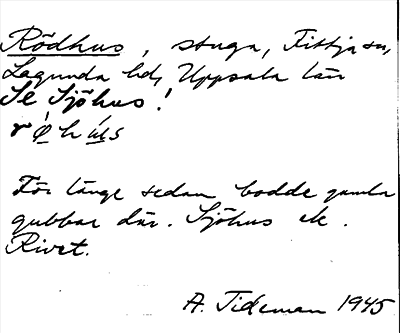 Rödhus, stuga, Fittja sn,
Lagunda hd, Uppsala län
Se Sjöhus!
rø̀hú̱s
För länge sedan bodde gamla
gubbar där. Sjöhus ek.
Rivet.
A. Tideman 1945